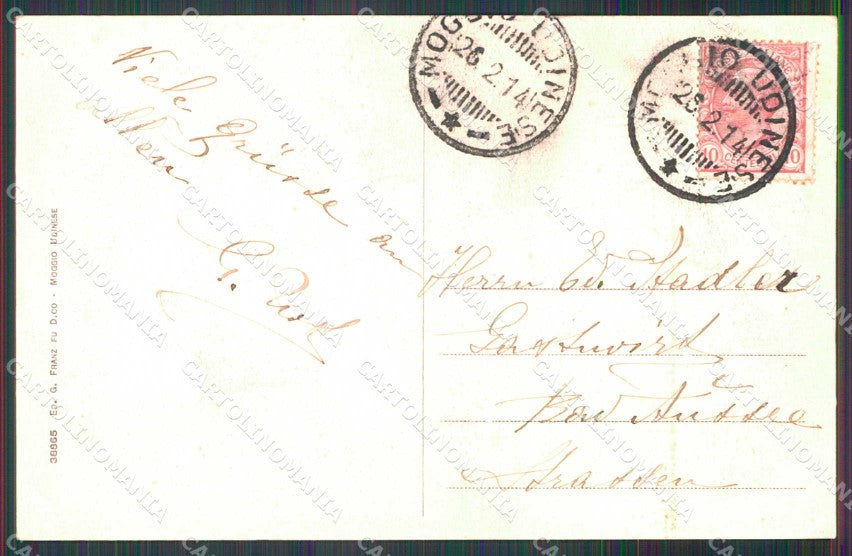 Viele Grüsse an
Allen
MOGGIO UDINESE
28.2.14
MOGGIO UDINESE
28.2.14
10 CENT. 10
Herrn Ed. Stadler
Gastwirt
Bad Aussee
Strassen
38865 ED. G. FRANZ FU D.CO - MOGGIO UDINESE
CARTOLINOMANIA